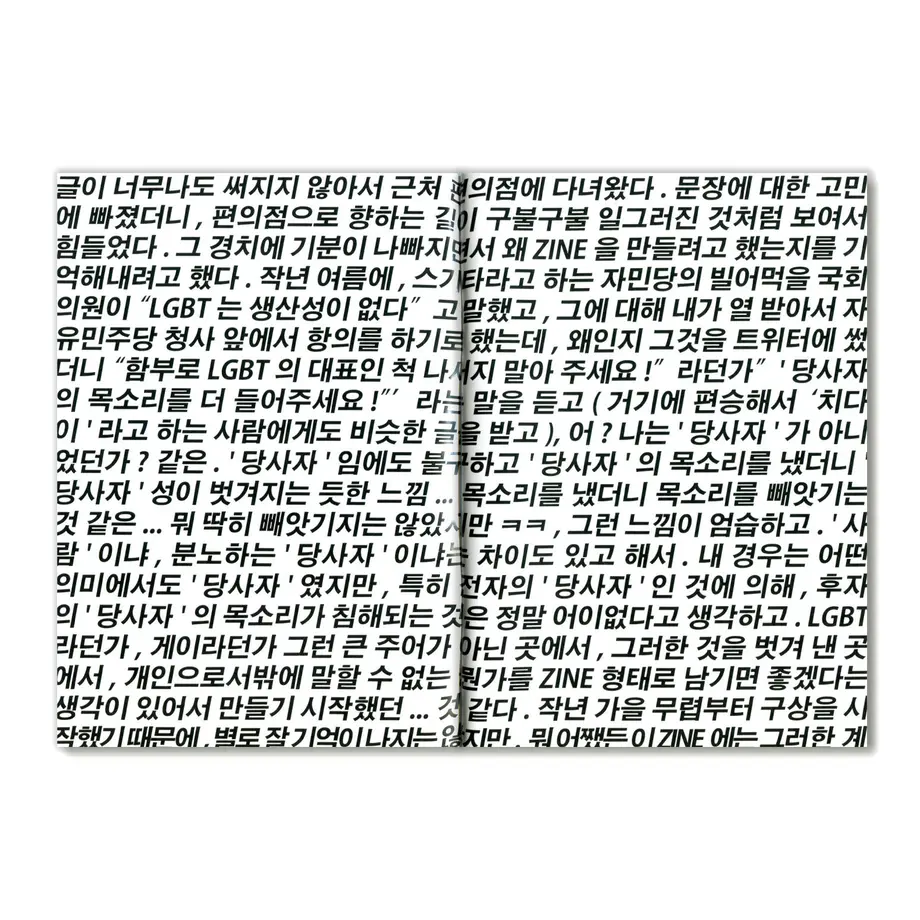 글이 너무나도 써지지 않아서 근처 편의점에 다녀왔다 . 문장에 대한 고민
에 빠졌더니 , 편의점으로 향하는 길이 구불구불 일그러진 것처럼 보여서
힘들었다 . 그 경치에 기분이 나빠지면서 왜 ZINE 을 만들려고 했는지를 기
억해내려고 했다 . 작년 여름에 , 스기타라고 하는 자민당의 빌어먹을 국회
의원이 “LGBT 는 생산성이 없다” 고 말했고 , 그에 대해 내가 열 받아서 자
유민주당 청사 앞에서 항의를 하기로 했는데 , 왜인지 그것을 트위터에 썼
더니 “함부로 LGBT 의 대표인 척 나서지 말아 주세요 !” 라던가” ' 당사자
의 목소리를 더 들어주세요 !”’ 라는 말을 듣고 ( 거기에 편승해서 ‘치다
이 ' 라고 하는 사람에게도 비슷한 글을 받고 ), 어 ? 나는 ' 당사자 ' 가 아니
었던가 ? 같은 . ' 당사자 ' 임에도 불구하고 ' 당사자 ' 의 목소리를 냈더니 '
당사자 ' 성이 벗겨지는 듯한 느낌 ... 목소리를 냈더니 목소리를 빼앗기는
것 같은 ... 뭐 딱히 빼앗기지는 않았지만 ㅋㅋ , 그런 느낌이 엄습하고 . ' 사
람 ' 이냐 , 분노하는 ' 당사자 ' 이냐는 차이도 있고 해서 . 내 경우는 어떤
의미에서도 ' 당사자 ' 였지만 , 특히 전자의 ' 당사자 ' 인 것에 의해 , 후자
의 ' 당사자 ' 의 목소리가 침해되는 것은 정말 어이없다고 생각하고 . LGBT
라던가 , 게이라던가 그런 큰 주어가 아닌 곳에서 , 그러한 것을 벗겨 낸 곳
에서 , 개인으로서밖에 말할 수 없는 뭔가를 ZINE 형태로 남기면 좋겠다는
생각이 있어서 만들기 시작했던 ... 것 같다 . 작년 가을 무렵부터 구상을 시
작했기 때문에 , 별로 잘 기억이 나지는 않지만 . 뭐 어쨌든 이 ZINE 에는 그러한 계